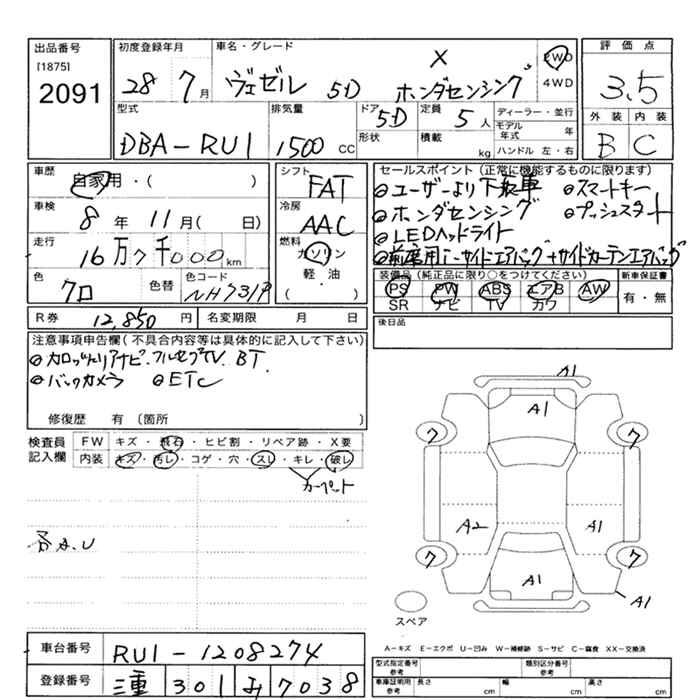 出品番号
[1875]
2091
初度登録年月
28 7月
車名・グレード
X
ヴェゼル 5D ホンダセンシング
2WD
4WD
評価点
3.5
外装 内装
B C
型式
DBA-RU1
排気量
1500 CC
ドア 5D
形状
定員 5人
積載 kg
ディーラー・並行
モデル年式 年
ハンドル 左・右
車歴
自家用・( )
車検
8年 11月( 日)
走行
16万7千000km
色
クロ 色替
色コード
NH731P
シフト
FAT
冷房
AAC
燃料
ガソリン
軽・油
( )
セールスポイント(正常に機能するものに限ります)
◎ユーザーより下取車 ◎スマートキー
◎ホンダセンシング ◎プッシュスタート
◎LEDヘッドライト
◎前席用i-サイドエアバッグ+サイドカーテンエアバッグ
装備品(純正品に限り○をつけてください)
PS PW ABS エアB AW
SR ナビ TV カワ
新車保証書
有・無
R券 12,850円 名変期限 月 日
後日品
注意事項申告欄(不具合内容等は具体的に記入して下さい)
◎カロッツェリアナビ.フルセグTV.BT.
◎バックカメラ ◎ETC
修復歴 有 (箇所 )
検査員
記入欄
FW キズ・飛石・ヒビ割・リペア跡・X要
内装 キズ・汚レ・コゲ・穴・スレ・キレ・破レ
カーペット
A1
A1
7 7
A2 A1
7 7
A1
A1
スペア
A-キズ E-エクボ U-凹み W-補修跡 S-サビ C-腐食 XX-交換済
車台番号 RU1-1208274
登録番号 三重 301 み 7038
型式指定番号 参考
類別区分番号 参考
車庫証明用 参考 長さ cm 幅 cm 高さ cm